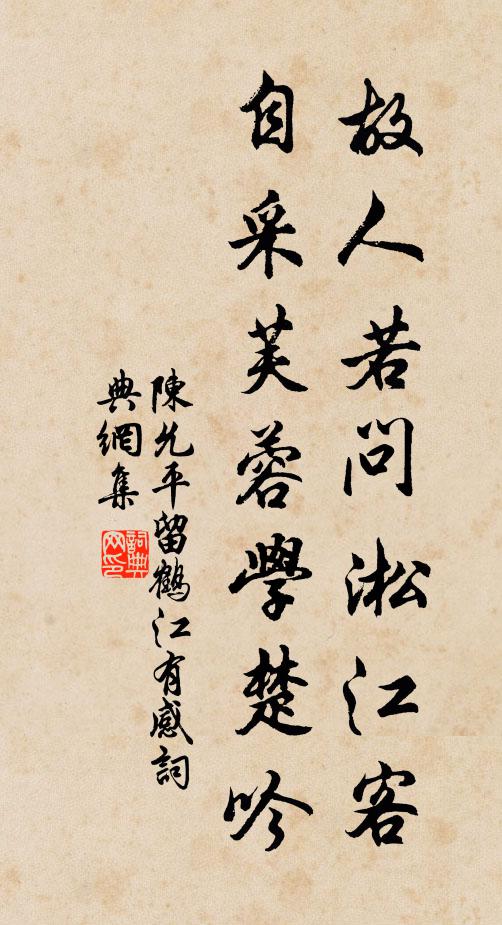 故人若問淞江客
自采芙蓉學楚吟
陳允平留鶴江有感詞
典網集
詞典
网印